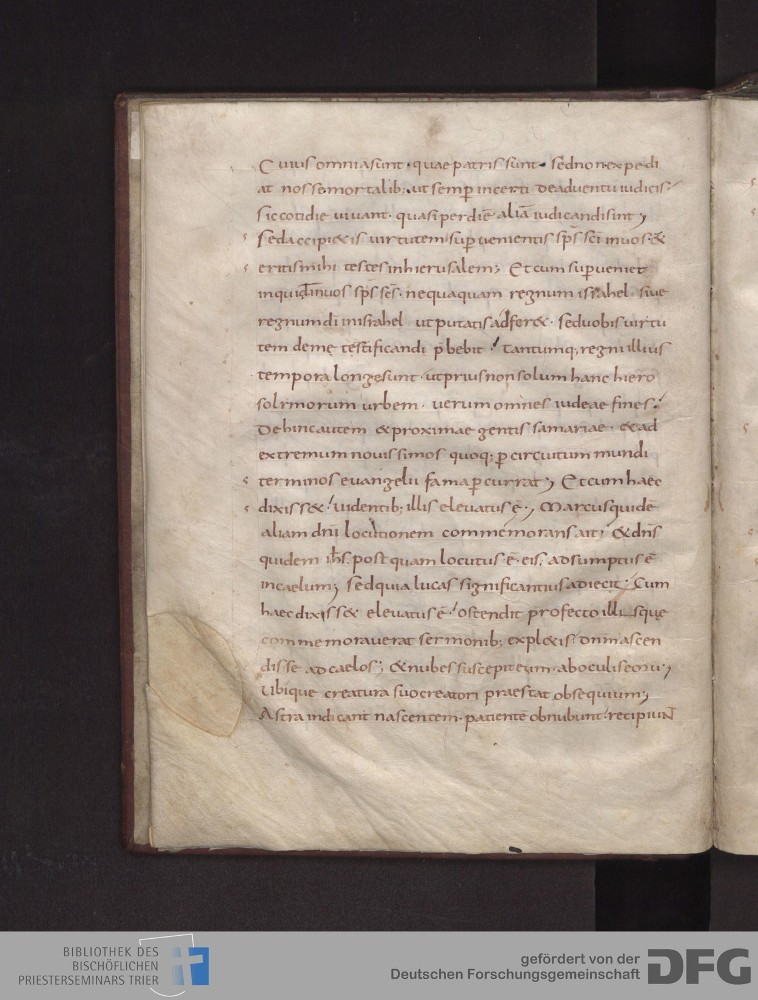 Cuius omnia sunt · quae patris sunt · sed non expedi
at nosse mortalib; ut semp incerti de aduentu iudicis
sic cotidie uiuant · quasi per diē aliā iudicandi sint ;
Sed accipi&is uirtutem supuenientis sp̄s sc̄i in uos · &
eritis mihi testes in hierusalem ; Et cum supueniet
inquid in uos sp̄s sc̄s · nequaquam regnum israhel siue
regnum di in israhel ut putatis adfer& · sed uobis uirtu
tem de me testificandi p̄bebit · tantumq; regni illius
tempora longe sunt · ut prius non solum hanc hiero
solimorum urbem · uerum omnes iudeae fines ·
Dehinc autem & proximae gentis samariae · & ad
extremum nouissimos quoq; p circuitum mundi
terminos euangelii fama pcurrat ; Et cum haec
dixiss& · uidentib; illis eleuatus ē · ; Marcus quidē
aliam dn̄i locutionem commemorans ait ; & dn̄s
quidem ih̄s · post quam locutus ē · eis · adsumptus ē
in caelum ; sed quia lucas significantius adiecit · Cum
haec dixiss& eleuatus ē · ostendit profecto illisque
commemorauerat sermonib; expl&is · dn̄m ascen
disse ad caelos ; & nubes suscepit eum · ab oculis eorū · ;
Ubique creatura suo creatori praestat obsequium ;
Astra indicant nascentem · patientē obnubunt · recipiunt
BIBLIOTHEK DES
BISCHÖFLICHEN
PRIESTERSEMINARS TRIER
gefördert von der
Deutschen Forschungsgemeinschaft
DFG